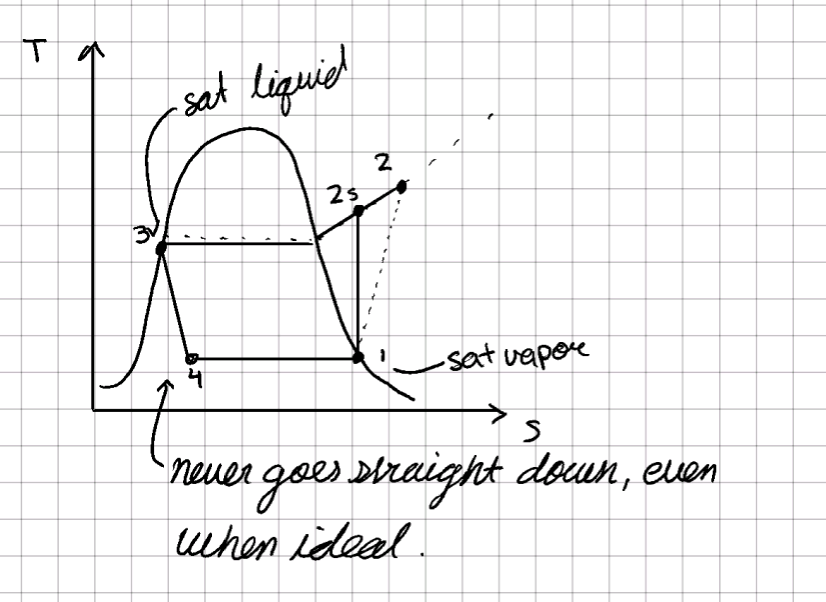 T
sat liquid
2
2s
3
1
sat vapor
4
S
never goes straight down, even
when ideal.